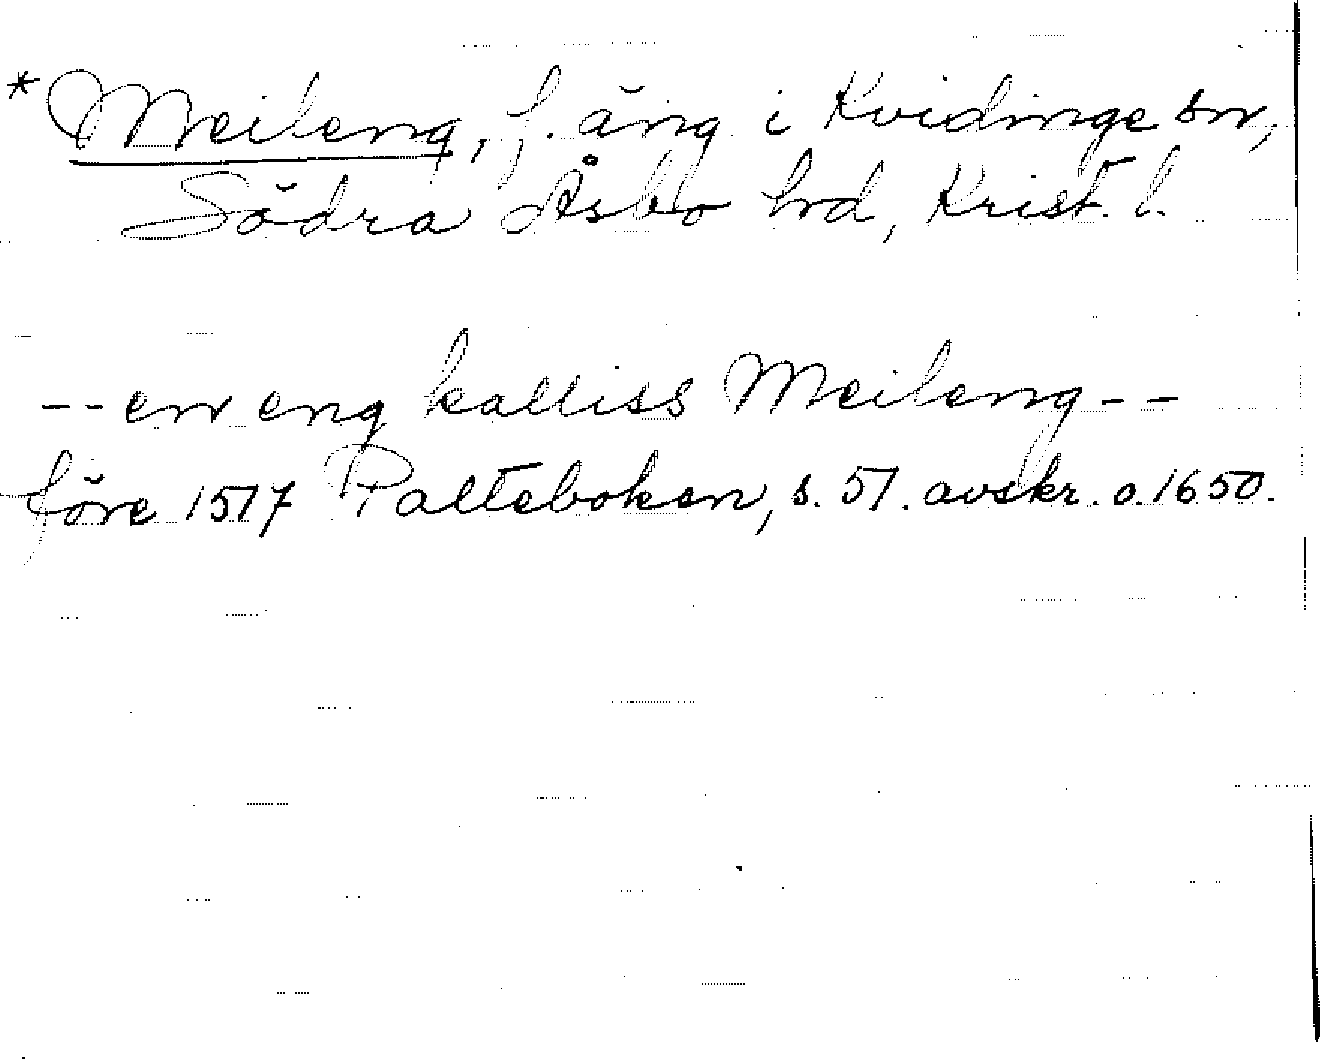 * Meileng, f. äng i Kvidinge sn,
Södra Åsbo hd, Krist. l.
-- en eng kalliss Meileng --
före 1517 Palteboken, s. 51. avskr. o. 1650.